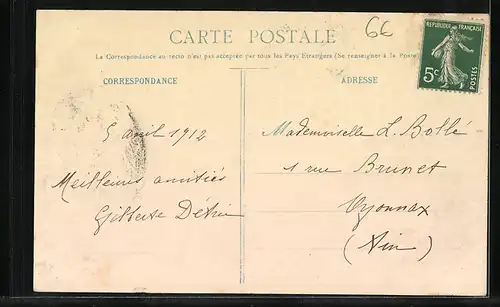 6€
CARTE POSTALE
RÉPUBLIQUE FRANÇAISE
5c
POSTES
La Correspondance au recto n'est pas acceptée par tous les Pays Étrangers (Se renseigner à la Poste)
CORRESPONDANCE
ADRESSE
5 avril 1912
Meilleures amitiés
Gilberte
Mademoiselle L. Bollé
1 rue Brunet
Oyonnax
(Ain)